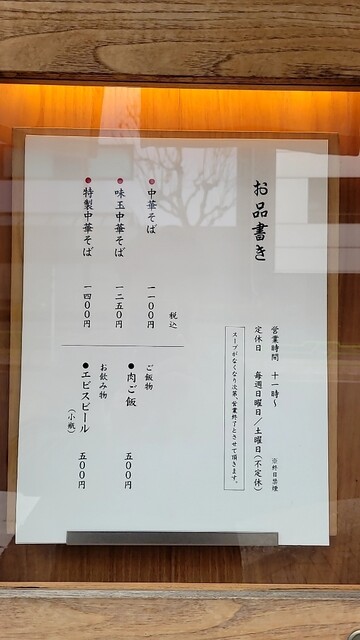 お品書き
営業時間 十一時〜
※終日禁煙
定休日 毎週日曜日／土曜日(不定休)
スープがなくなり次第、営業終了とさせて頂きます。
税込
●中華そば 一一〇〇円
●味玉中華そば 一二五〇円
●特製中華そば 一四〇〇円
ご飯物
●肉ご飯 五〇〇円
お飲み物
●エビスビール 五〇〇円
(小瓶)